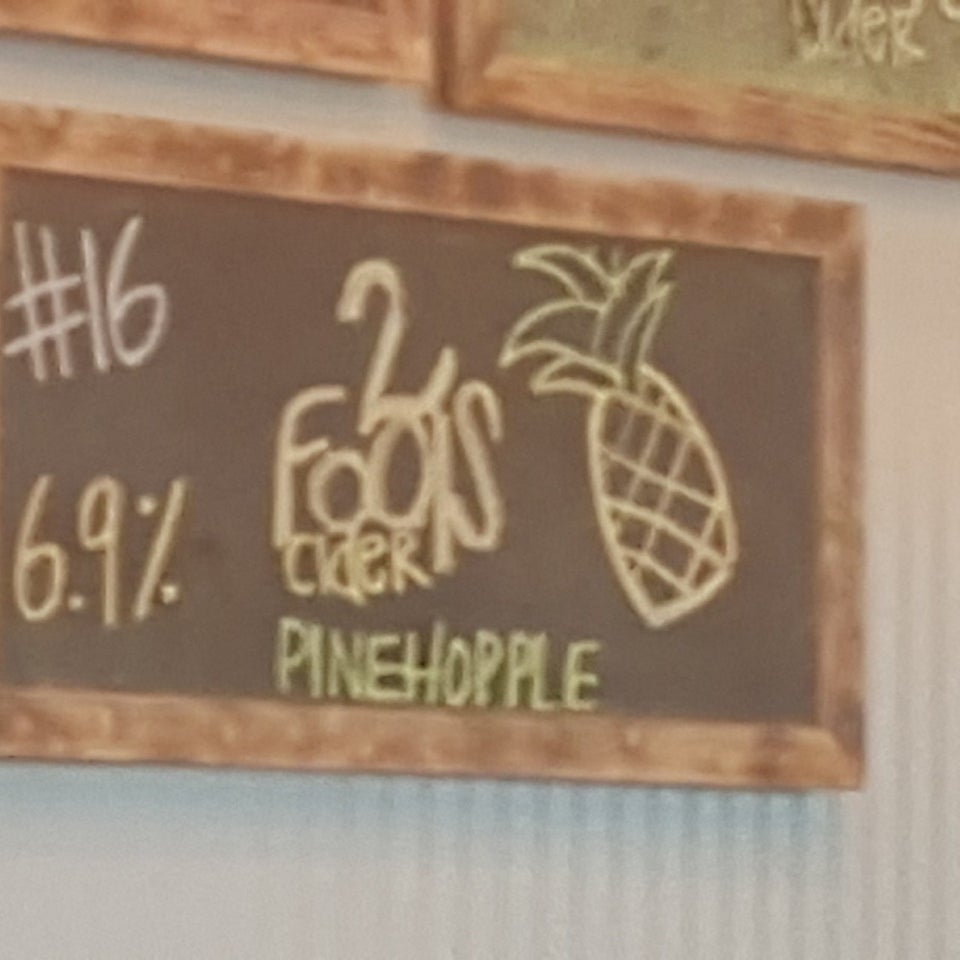 Cider
#16
2
FOOLS
CIDER
6.9%
PINEHOPPLE